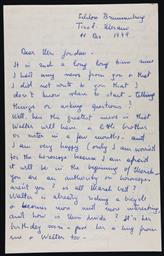 Schloss Brunnenburg
Tirol Merano
11 Dec 1949
Dear Mrs Jordan -
It is such a long long time since
I had any news from you & that
I did not write to you that I
don't know where to start: telling
things or asking questions!
Well, here the greatest news is that
Walter will have a little brother
or sister in a few months. and
I am very happy (only I am worried
for the horoscope because I am afraid
it will be in the beginning of March
you are an authority on horoscopes
aren't you? is all March bad?
Walter is already riding a bicycle
& becomes more and more interesting
and how is Ann Linda? It's her
birthday soon - give her a hug from
me & Walter too -